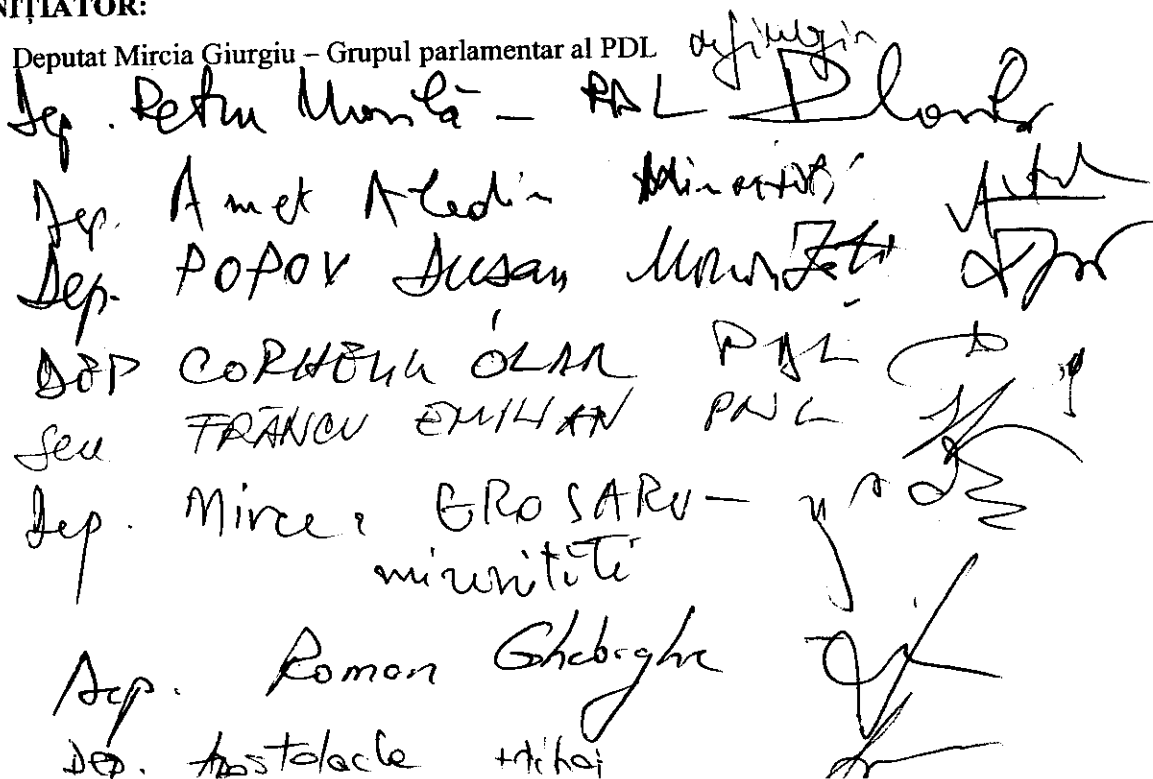 NIȚIATOR:
Deputat Mircia Giurgiu – Grupul parlamentar al PDL
Dep. Petru – PDL
Dep. Amet Aledin Minorități
Dep. POPOV Dusan Minorități
DEP CORNELIU OLAR PDL
Sen FRÂNCU EMILIAN PNL
Dep. Mircea GROSARU –
minorități
Dep. Roman Gheorghe
DEP. Apostolache Mihai